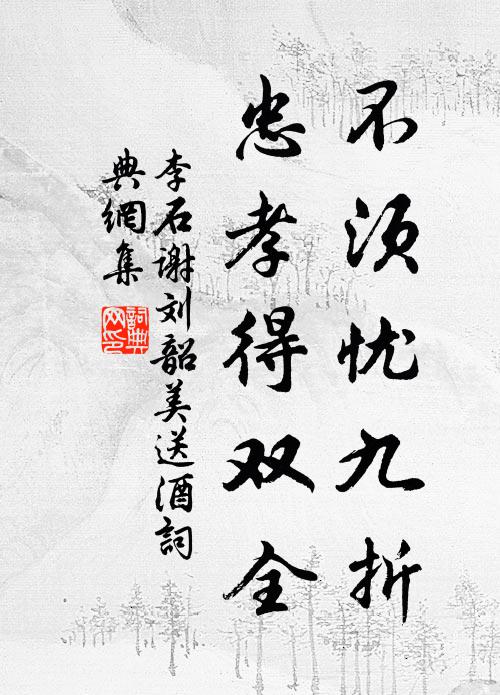 不须忧九折
忠孝得双全
李石谢刘韶美送酒詞
典網集
詞典网印